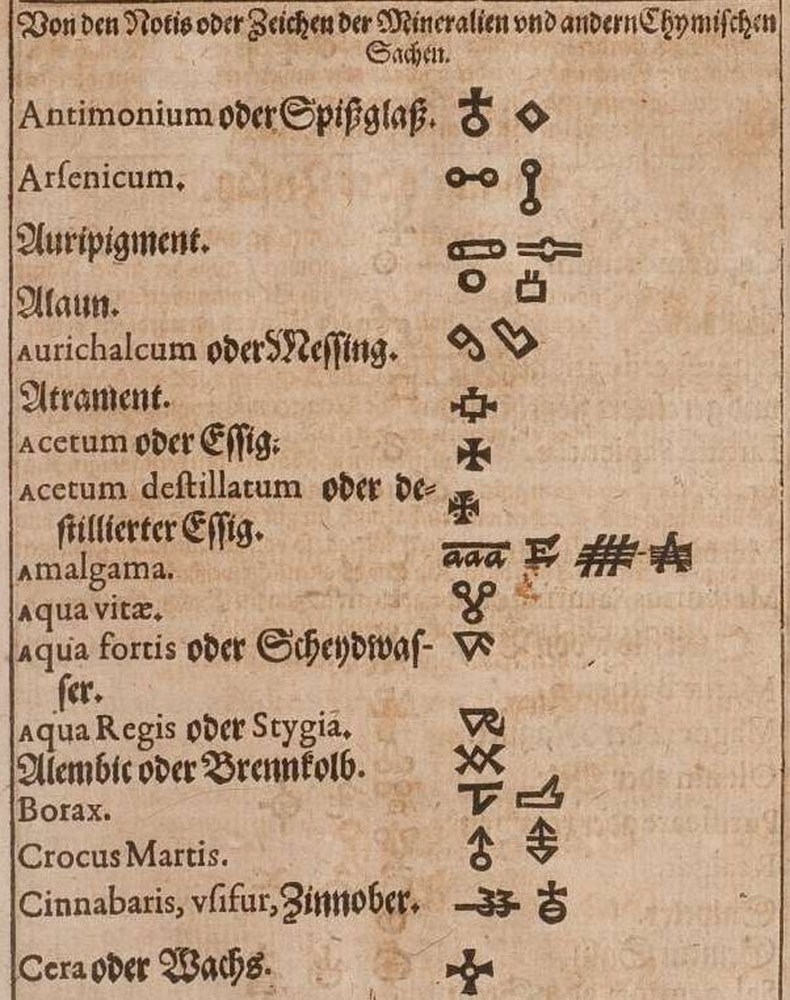 Von den Notis oder Zeichen der Mineralien vnd andern Chymiſchen
Sachen.
Antimonium oder Spißglaß.
Arſenicum.
Auripigment.
Alaun.
Aurichalcum oder Meſſing.
Atrament.
Acetum oder Eſſig.
Acetum deſtillatum oder de⸗
ſtillierter Eſſig.
Amalgama. aaa
Aqua vitæ.
Aqua fortis oder Scheydwaſ-
ſer.
Aqua Regis oder Stygia.
Alembic oder Brennkolb.
Borax.
Crocus Martis.
Cinnabaris, vſifur, Zinnober.
Cera oder Wachs.